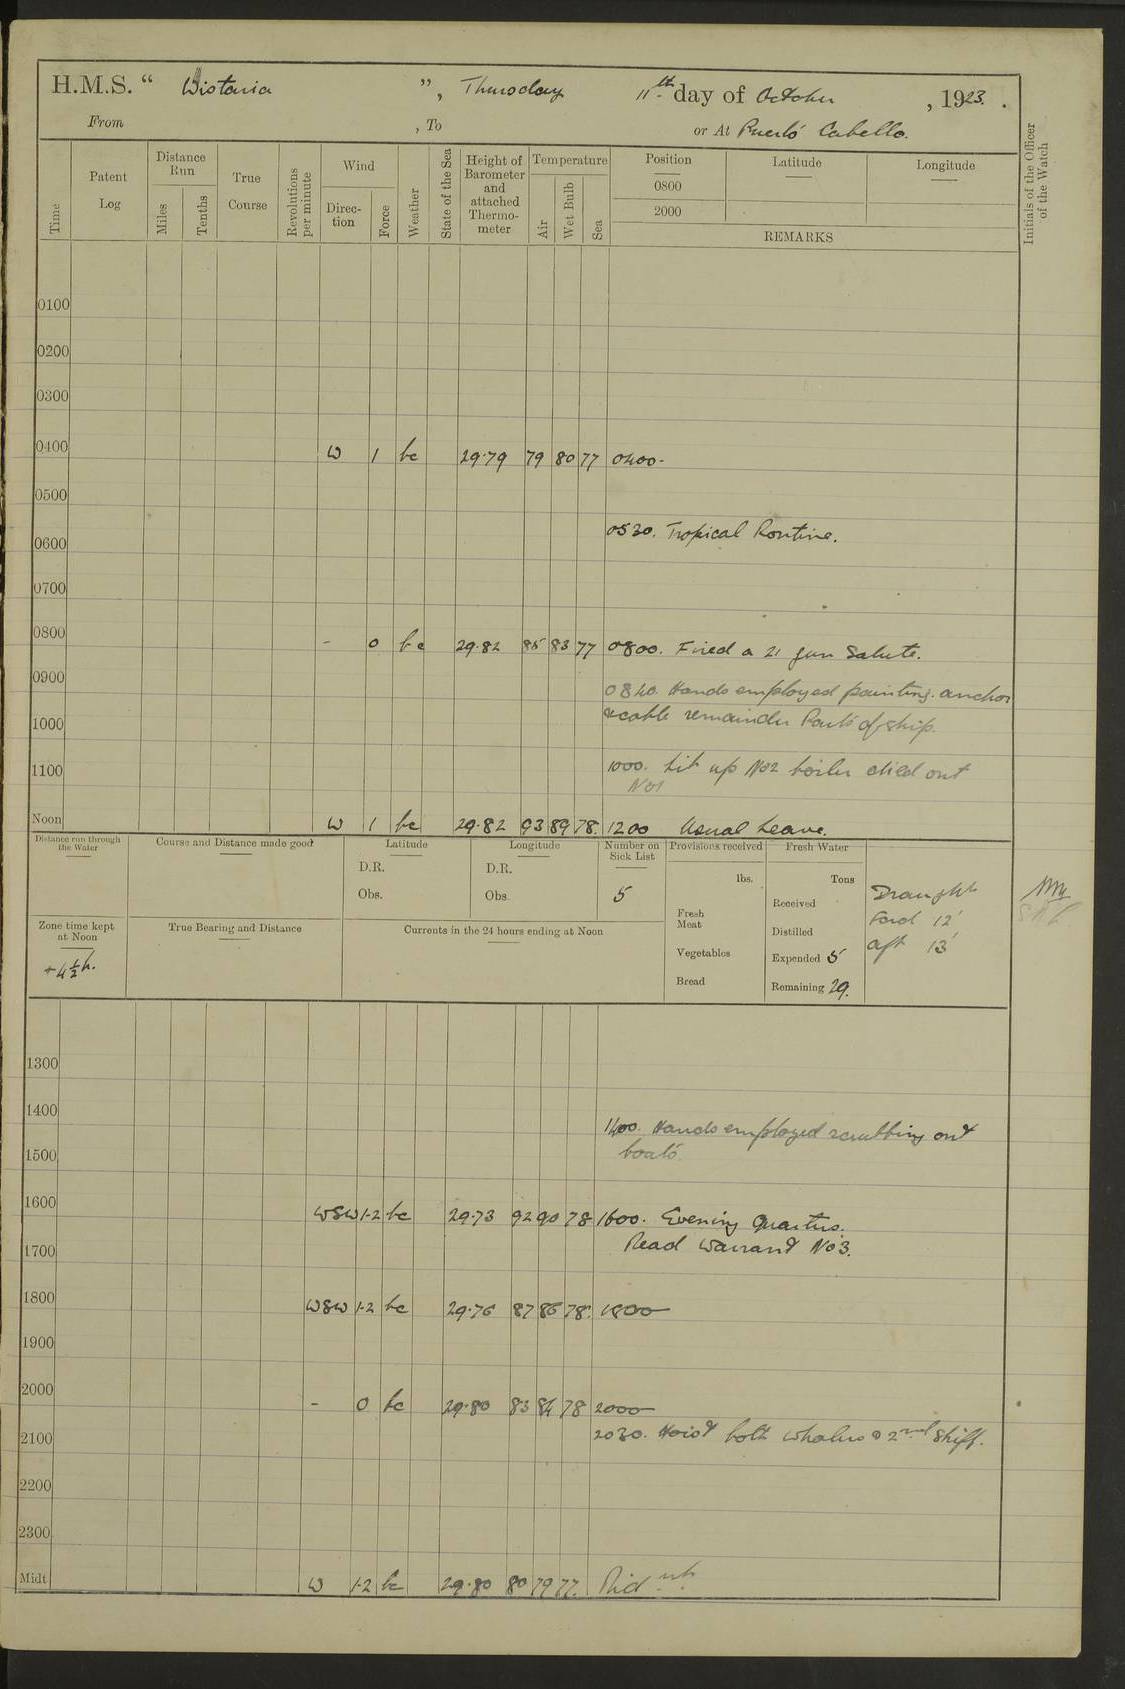 H.M.S. “ Wistaria ”, Thursday 11th day of October, 1923.
From , To or At Puerto Cabello.
Time
Patent Log
Distance Run
Miles
Tenths
True Course
Revolutions per minute
Wind
Direc-tion
Force
Weather
State of the Sea
Height of Barometer and attached Thermo-meter
Temperature
Air
Wet Bulb
Sea
Position
0800
2000
Latitude
Longitude
REMARKS
Initials of the Officer of the Watch
0100
0200
0300
0400 W 1 bc 29.79 79 80 77 0400-
0500
0530. Tropical Routine.
0600
0700
0800 - 0 bc 29.82 85 83 77 0800. Fired a 21 gun Salute.
0900 0840. Hands employed painting. anchor
& cable remainder Parts of ship.
1000
1000. Lit up No2 boiler died out
1100 No1
Noon W 1 bc 29.82 93 89 78. 1200 Usual Leave.
Distance run through the Water
Course and Distance made good
Latitude
D.R.
Obs.
Longitude
D.R.
Obs.
Number on Sick List
5
Provisions received
lbs.
Fresh Meat
Vegetables
Bread
Fresh Water
Tons
Received
Distilled
Expended 5
Remaining 29.
Draught
Ford 12'
Aft 13'
Zone time kept at Noon
+4½h.
True Bearing and Distance
Currents in the 24 hours ending at Noon
1300
1400
1400. Hands employed scrubbing out
boats.
1500
1600 WSW 1-2 bc 29.73 92 90 78 1600. Evening Quarters.
Read Warrant No3.
1700
1800 WSW 1-2 bc 29.76 87 86 78. 1800
1900
2000 - 0 bc 29.80 83 84 78 2000
2030. Hoist both whalers & 2nd Skiff.
2100
2200
2300
Midt W 1-2 bc 29.80 80 79 77. Mid nt.